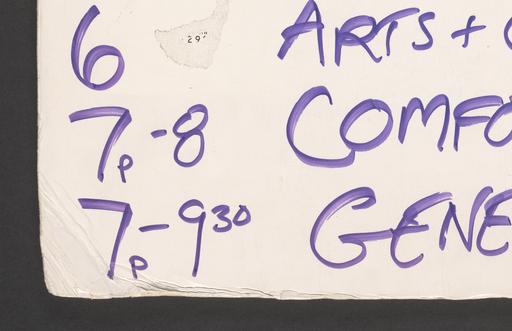 6 ARTS +
29"
7p-8 COMFO
7p-930 GENE